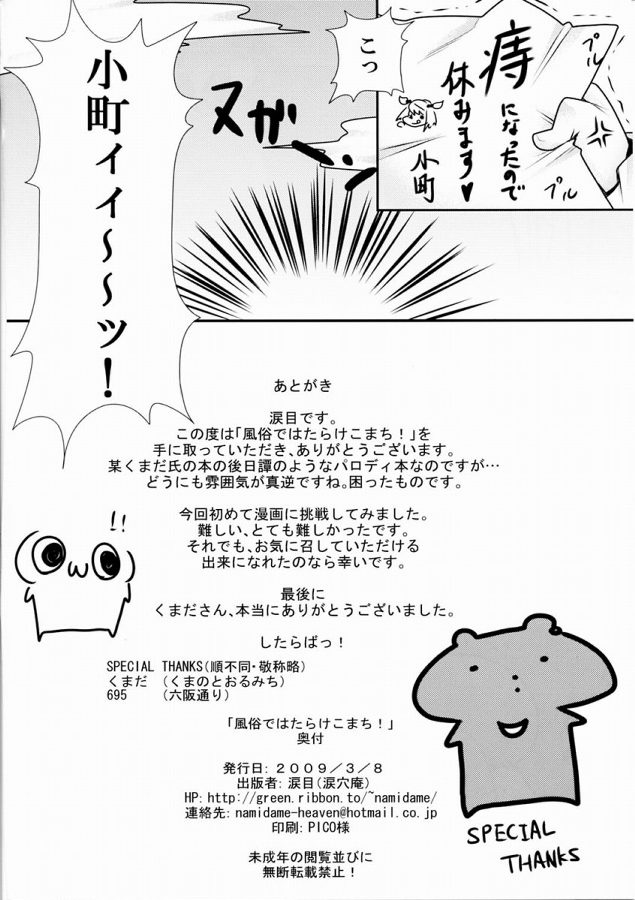 プル
痔
になったので
休みます♥
小町
プル
こっ
ヌがーッ
小町ィイ～～ッ！
あとがき
涙目です。
この度は「風俗ではたらけこまち！」を
手に取っていただき、ありがとうございます。
某くまだ氏の本の後日譚のようなパロディ本なのですが…
どうにも雰囲気が真逆ですね。困ったものです。
今回初めて漫画に挑戦してみました。
難しい、とても難しかったです。
それでも、お気に召していただける
出来になれたのなら幸いです。
最後に
くまださん、本当にありがとうございました。
したらばっ！
!!
SPECIAL THANKS(順不同・敬称略)
くまだ　(くまのとおるみち)
695　　(六阪通り)
「風俗ではたらけこまち！」
奥付
発行日: ２００９／３／８
出版者: 涙目(涙穴庵)
HP: http://green.ribbon.to/~namidame/
連絡先: namidame-heaven@hotmail.co.jp
印刷: PICO様
未成年の閲覧並びに
無断転載禁止！
SPECIAL
THANKS